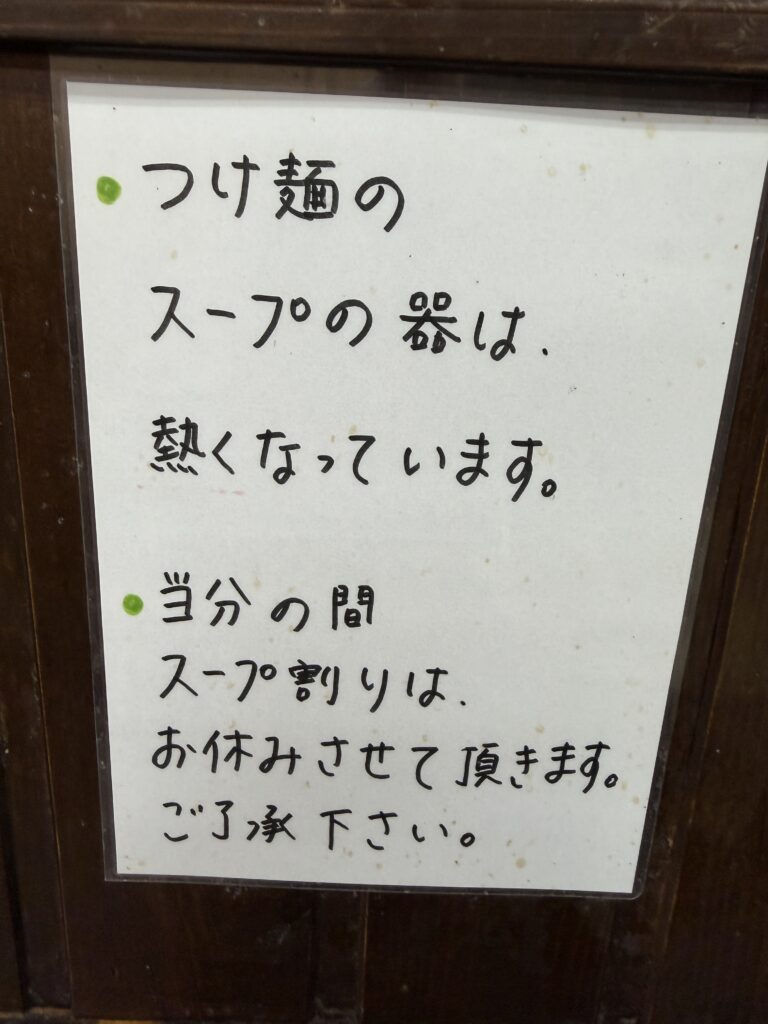 ●つけ麺の
スープの器は、
熱くなっています。
●当分の間
スープ割りは、
お休みさせて頂きます。
ご了承下さい。